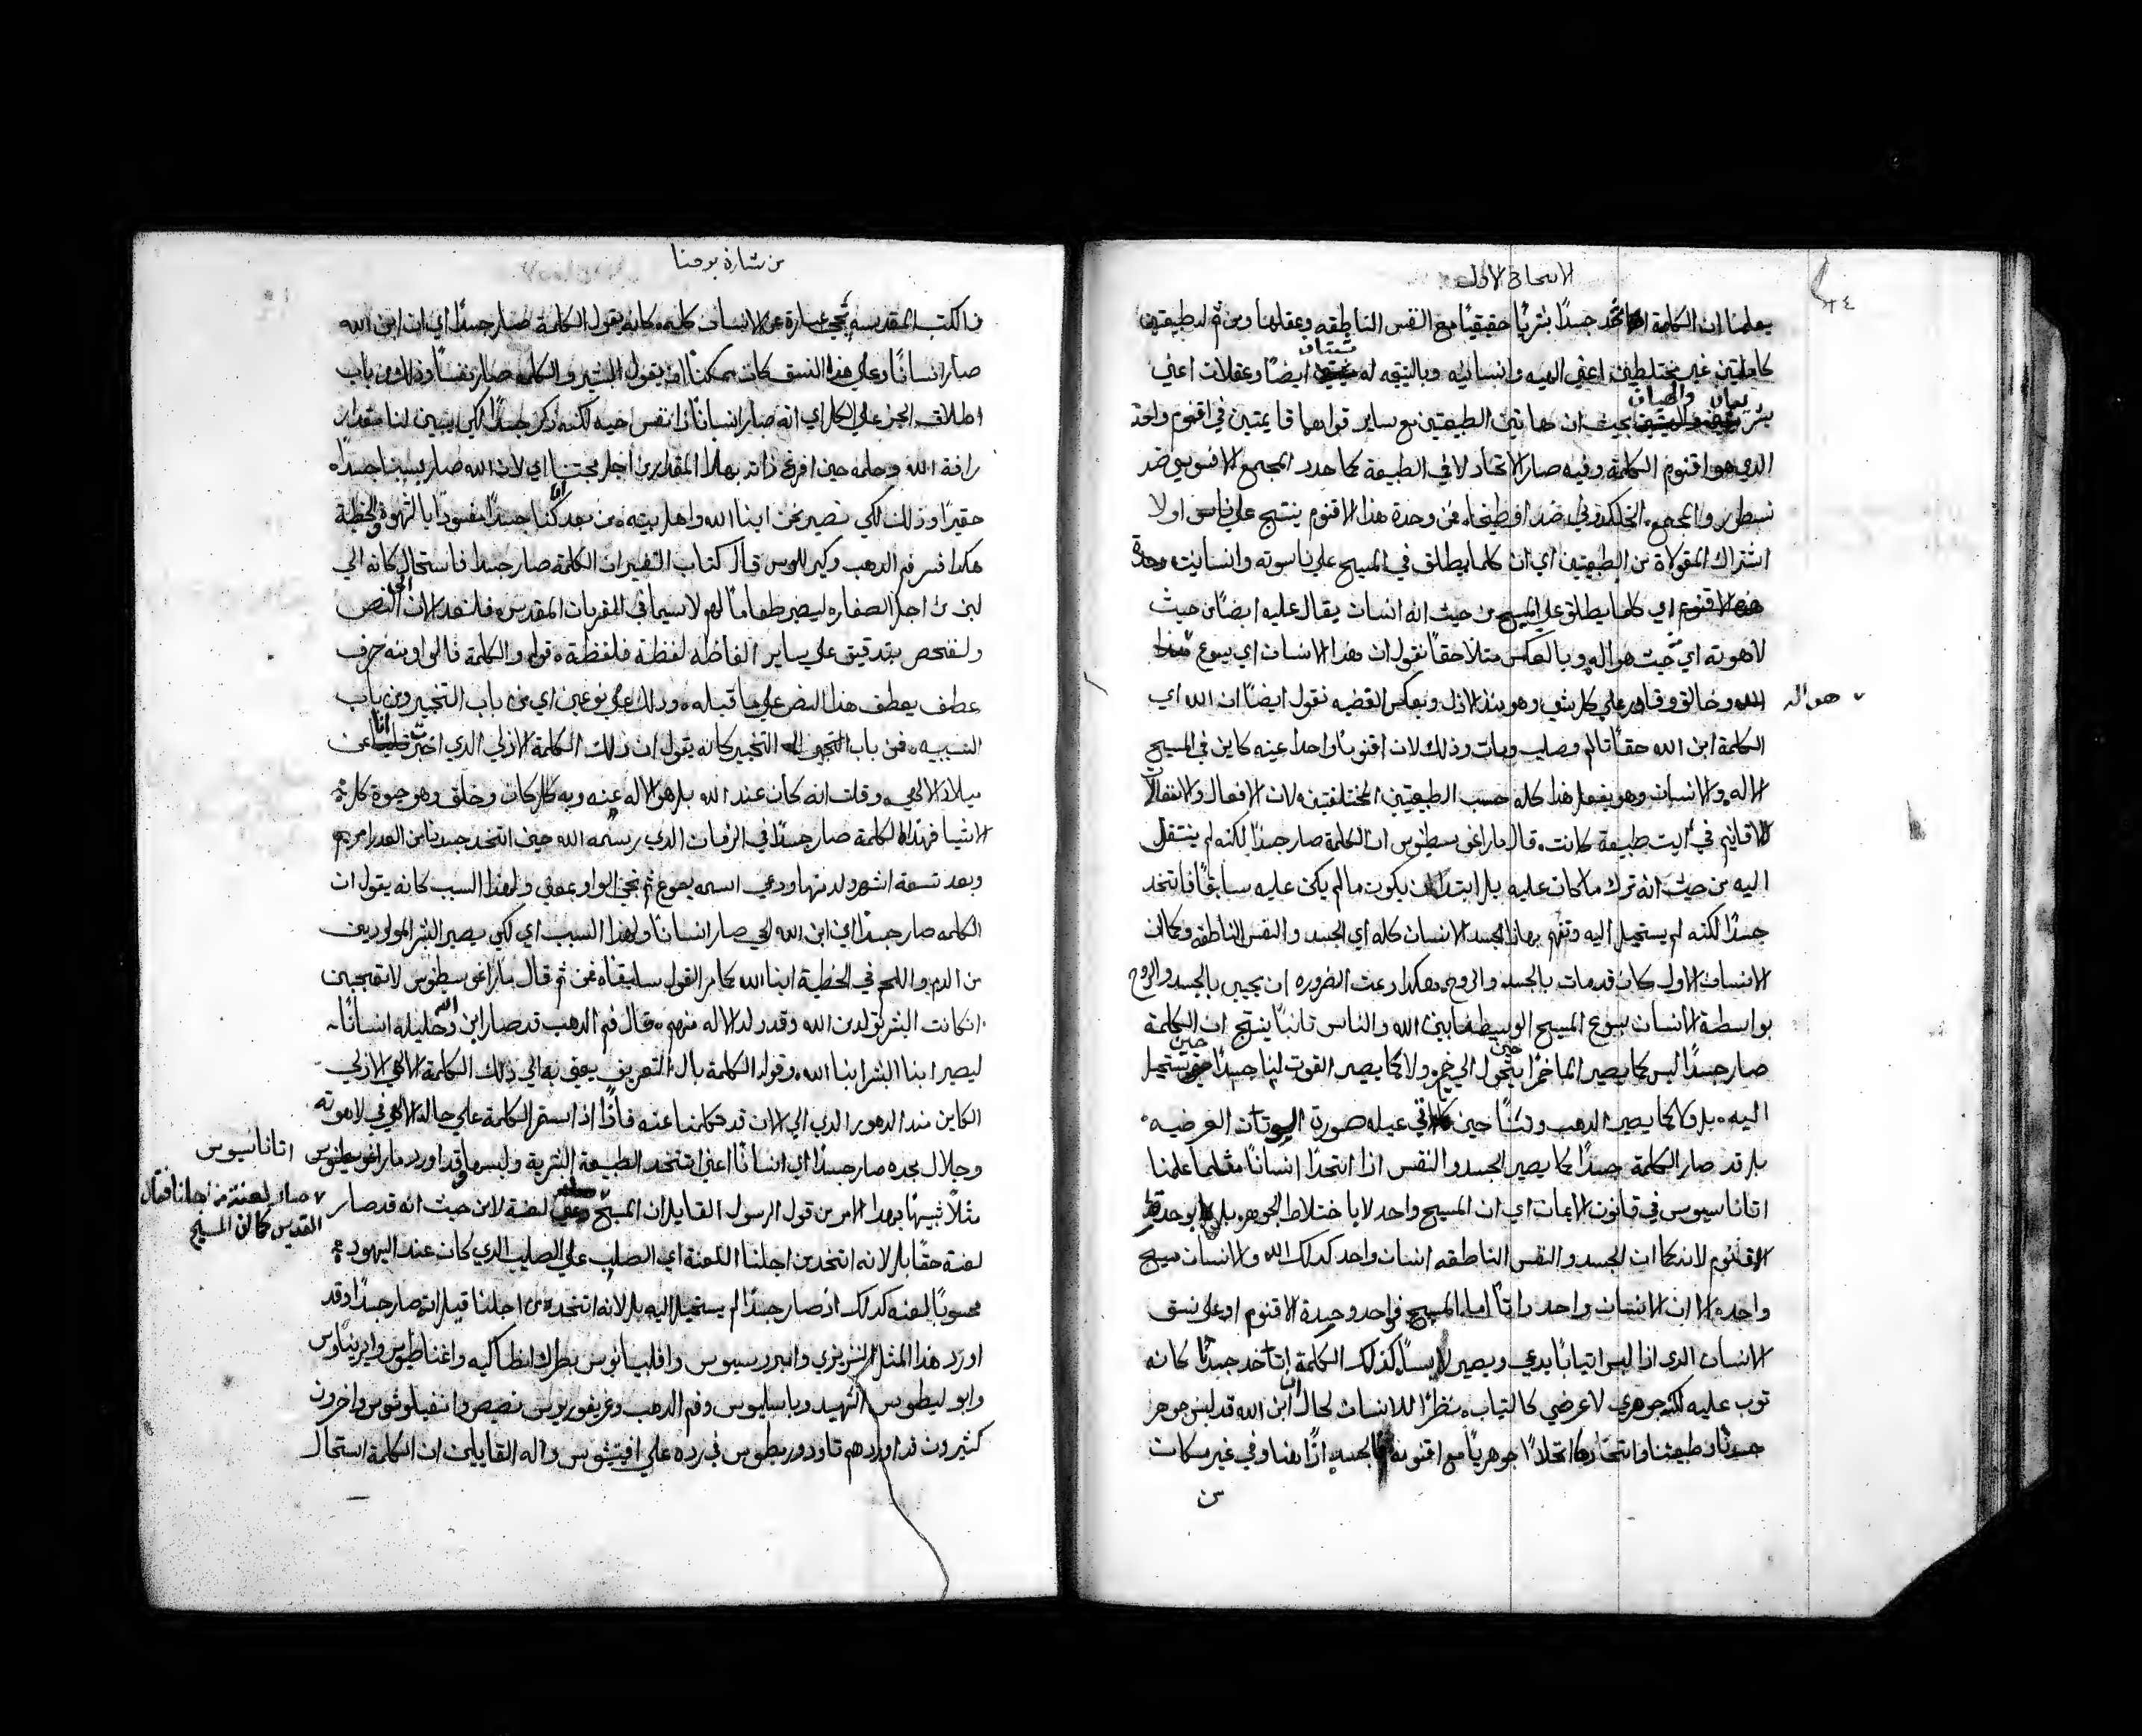 الاصحاح الاول
يعلمنا ان الكلمة اتخد جسدًا بشريًا حقيقيًا مع النفس الناطقه وعقلها ومن ثم له طبيعتين
كاملتين غير مختلطين اعني الهيه وانسانيه وبالنتيجه له مشيتان ايضًا وعقلان اعني
بحيث ان هاتين الطبيعتين مع ساير قواهما قايمتين في اقنوم واحد
الدي هو اقنوم الكلمة وفيه صار الاتحاد لا في الطبيعة كما حدد المجمع الافسوسي ضد
نسطور والمجمع الخلكدوني ضد اوطيخا. فمن وحدة هذا الاقنوم ينتج اولا
اشتراك المقولاة من الطبيعتين اي ان كلما يطلق في المسيح علي ناسوته وانسانيته
اي كلما يطلق علي المسيح من حيث انه انسان يقال عليه ايضًا من حيث
لاهوته اي من حيث هو اله وبالعكس مثلا حقًا نقول ان هذا الانسان اي يسوع
هو اله
الله وخالق وقادر علي كل شي وهو منذ الازل وبعكس القضيه نقول ايضًا ان الله اي
الكلمة ابن الله حقًا تالم وصلب ومات وذلك لان اقنومًا واحدا عينه كاين في المسيح
الاله والانسان وهو يفعل هذا كله حسب الطبيعتين المختلفتين لان الافعال والانفعالات
للاقانيم في أيت طبيعة كانت. قال ماراغوسطينوس ان الكلمة صار جسدًا لكنه لم ينتقل
اليه من حيث انه ترك ما كان عليه بل ابتدا ان يكون ما لم يكن عليه سابقًا فاتخد
جسدًا لكنه لم يستحيل اليه وتفهم بهذا الجسد الانسان كله اي الجسد والنفس الناطقه وكما ان
الانسان الاول كان قد مات بالجسد والروح. هكذا دعت الضروره ان يحيي بالجسد والروح
بواسطة الانسان يسوع المسيح الوسيط ما بين الله والناس ثانيًا ينتج ان الكلمة
صار جسدًا ليس كما يصير الما خمرًا حين يتحول الي خمر. ولا كما يصير القوت لبنا جسدًا حين يستحيل
اليه. بل ولا كما يصير الدهب وثنًا حين صورة الوثان العرضيه.
بل قد صار الكلمة جسدًا كما يصير الجسد والنفس اذا اتحدا انسانًا مثلما علمنا
اتاناسيوس في قانون الايمان اي ان المسيح واحد لا باختلاط الجوهر. بل بوحدة
الاقنوم لانه كما ان الجسد والنفس الناطقه انسان واحد كدلك الله والانسان مسيح
واحد الا ان الانسان واحد ذاتًا اما المسيح فواحد وحيدة الاقنوم او علي نسق
الانسان الدي اذا لبس اتيابًا يدعي ويصير لابسًا. كذلك الكلمة اتخد جسدًا كانه
ثوب عليه لكنه جوهري لا عرضي كالتياب. نظرًا للانسان لحال ان ابن الله قد لبس جوهر
جسدنا وطبيعتنا واتحد بها اتحادًا جوهريًا مع اقنومه فالجسد اذًا هنا وفي غير مكان
من
من بشارة يوحنا
من الكتب المقدسه يجي عبارة عن الانسان كله. كانه يقول الكلمة صار جسدًا اي ان ابن الله
صار انسانًا وعلي هذا النسق كان يمكننا ان يقول البشير والكلمه صار نفسًا وذلك من باب
اطلاق الجز علي الكل اي انه صار انسانًا ذا نفس حيه لكنه ذكر جسدًا لكي يبين لنا مقدار
رافة الله وحلمه حين افرغ ذاته بهدا المقدار من اجل محبتنا اي لان الله صار بسببنا جسدًا
حقيرًا وذلك لكي نصير نحن ابنا الله واهل بيته. من بعد كنا جسدًا مفسودًا بالشهوة والخطية
هكدا فسر فم الدهب وكيرللوس قال كتاب التفسير ان الكلمة صار جسدا فاستحال كانه الي
لبن من اجل الصغار. ليصير طعامًا لهم لا سيما في القربان المقدس. فلنعد الان الي النص
ولنفحص بتدقيق علي ساير الفاظه لفظة فلفظة. قوله والكلمة فالواو منه حرف
عطف يعطف هذا النص علي ما قبله. وذلك علي نوعين اي من باب التخبير ومن باب
السببيه. فمن باب التخبير كانه يقول ان ذلك الكلمة الازلي الدي اخبرت عن
ميلاده الالهي. وقلت انه كان عند الله بل هو الاله عينه وبه كل كان وخلق وهو حيوة كل
الاشيا فهدا الكلمة صار جسدًا في الزمان الدي رسمه الله حين اتخد جسدنا من العدرا مريم
وبعد تسعة اشهر ولد منها ودعي اسمه يسوع ثم تجي الواو بمعني ولهذا السبب كانه يقول ان
الكلمه صار جسدًا اي ابن الله الحي صار انسانًا ولهذا السبب اي لكي يصير البشر المولودين
من الدم واللحم في الخطية ابنا الله كما مر القول سابقًا. فمن ثم قال ماراغوسطينوس لا تتعجبن
ان كانت البشر تولد من الله وقد ولد الاله منهم. قال فم الدهب قد صار ابن الله وخليله انسانًا.
ليصير ابنا البشر ابنا الله. وقوله الكلمة بال التعريف يعني به الي ذلك الكلمة الالهي الازلي
الكاين منذ الدهور الدي الي الان قد تكلمنا عنه فاذًا اذ استمر الكلمة علي حاله الالهي في لاهوته
وجلال مجده صار جسدًا اي انسانًا اعني اتخد الطبيعة البشرية ولبسها وقد اورد اتاناسيوس
مثلًا شبيهًا بهدا الامر من قول الرسول القايل ان المسيح صار لعنة من اجلنا فقال
القديس كما ان المسيح
لعنة لا من حيث انه قد صار
لعنة حقًا بل لانه اتخد من اجلنا اللعنة اي الصلب علي الصليب الدي كان عند اليهود
محسوبًا لعنه كدلك اذ صار جسدًا لم يستحيل اليه بل لانه اتخده من اجلنا قيل انه صار جسدًا وقد
اورد هذا المثل النزينزي وامبروسيوس وافليبانوس بطرك انطاكيه واغناطيوس وايريناوس
وابوليطوس الشهيد وباسيليوس وفم الدهب وغريغوريوس نصيص وانفيلوثيوس واخرون
كثيرون قد اوردهم تاودوريطوس في رده علي افتيشوس واله القايلين ان الكلمة استحال